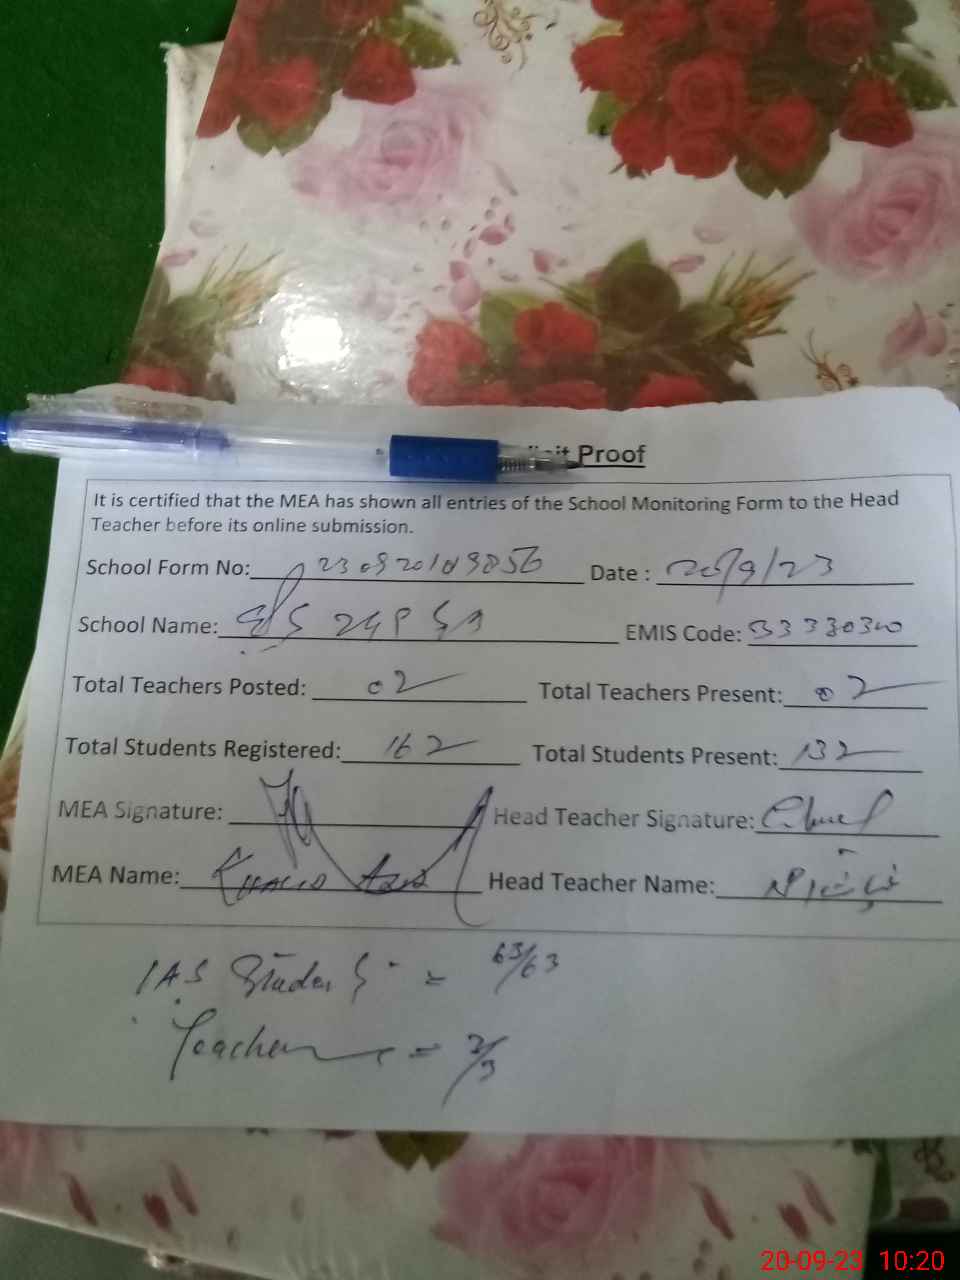 Visit Proof
It is certified that the MEA has shown all entries of the School Monitoring Form to the Head
Teacher before its online submission.
School Form No: 230920109856 Date : 20/9/23
School Name: EMIS Code: 33330300
Total Teachers Posted: 02 Total Teachers Present: 02
Total Students Registered: 162 Total Students Present: 132
MEA Signature: Head Teacher Signature:
MEA Name: Khalid Head Teacher Name:
IAS Students = 63/63
Teachers = 2/3
20-09-23 10:20